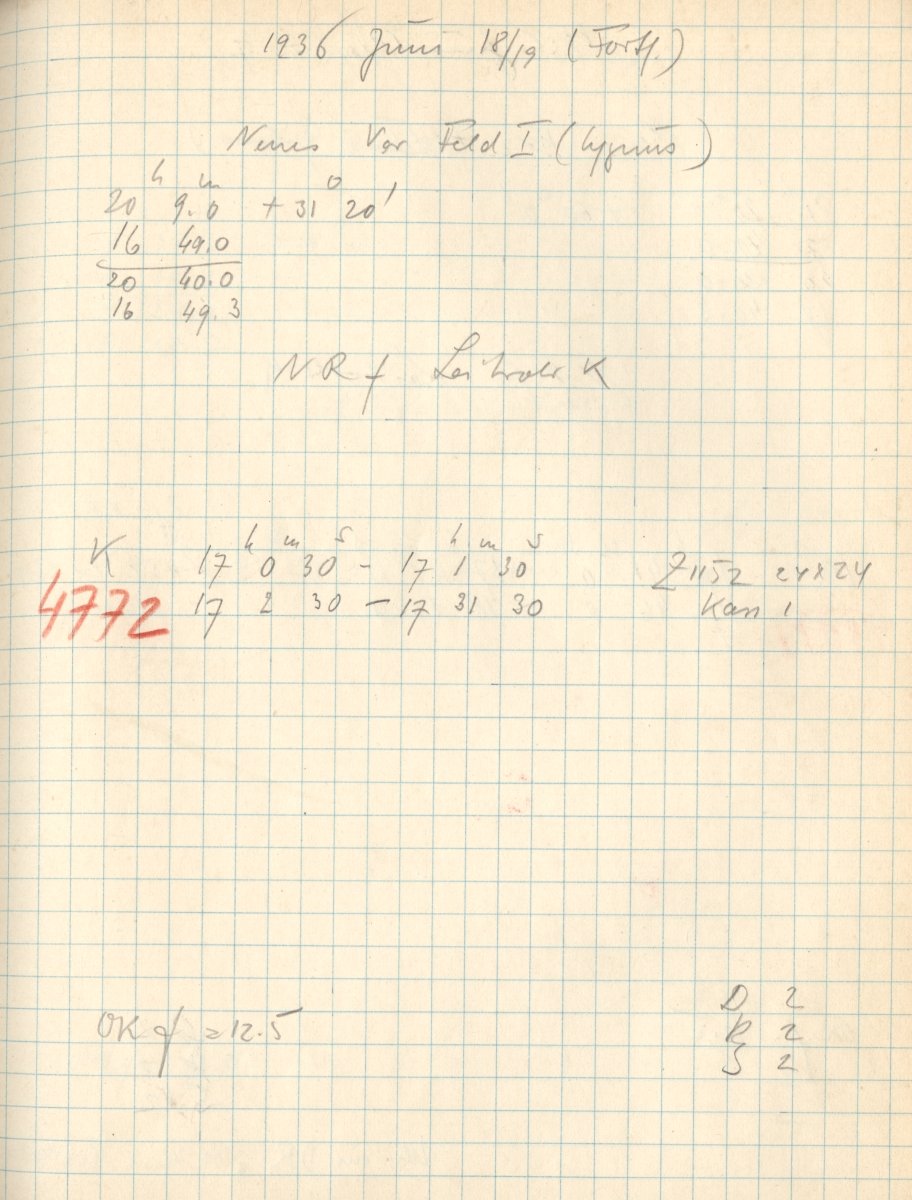 1936 Juni 18/19 (Forts.)
Neues Var Feld I (Cygnus)
20 h 9.0 m + 31° 20'
16 49.0
20 40.0
16 49.3
NR f K
K 17 h 0 m 30 s - 17 h 1 m 30 s Z 1152 24x24
4772 17 2 30 - 17 31 30 Kass 1
OK f = 12.5
D 2
R 2
S 2